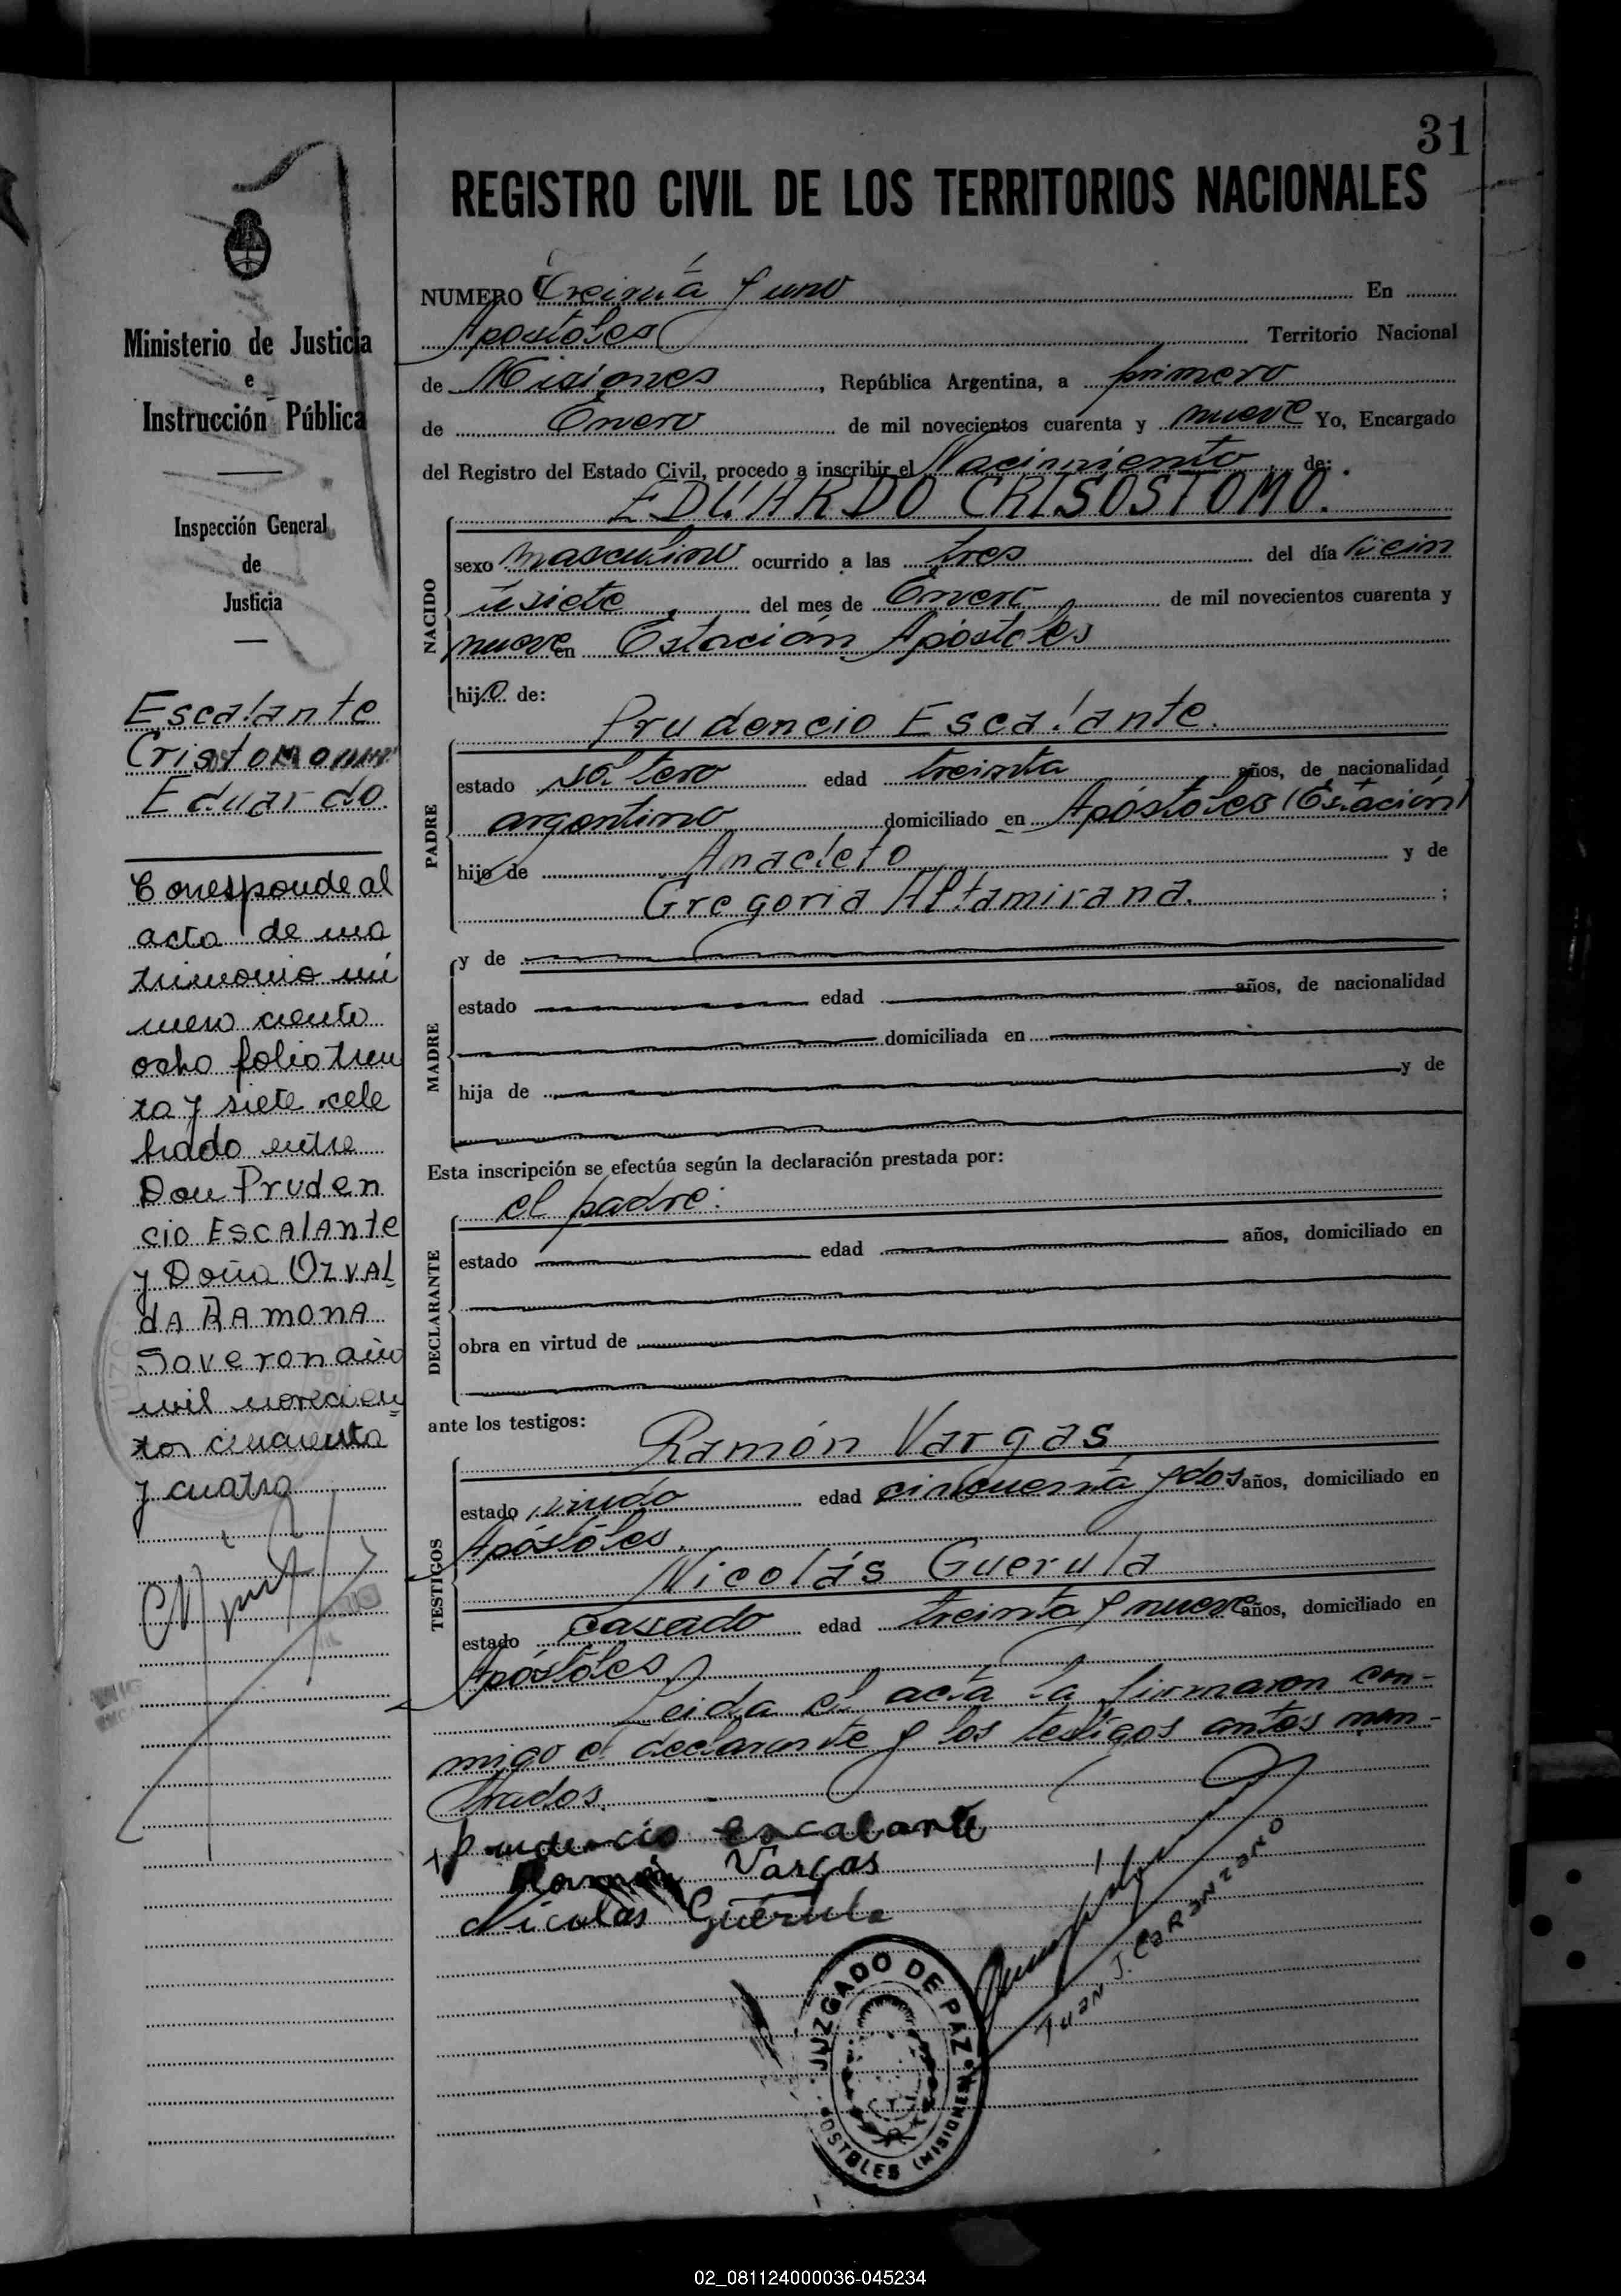 31
REGISTRO CIVIL DE LOS TERRITORIOS NACIONALES
Ministerio de Justicia
e
Instrucción Pública
Inspección General
de
Justicia
Escalante
Eduardo
Corresponde al
acta de ma
trimonio nú
mero ciento
ocho folio trein
ta y siete cele
brado entre
Don Pruden
cio ESCALANTE
y Doña OZVAL
dA RAMONA
Saveron año
mil novecien
tos cincuenta
y cuatro
NUMERO Treinta y uno En
Apóstoles Territorio Nacional
de Misiones, República Argentina, a primero
de Enero de mil novecientos cuarenta y nueve Yo, Encargado
del Registro del Estado Civil, procedo a inscribir el Nacimiento de:
EDUARDO CRISOSTOMO.
NACIDO
sexo masculino ocurrido a las tres del día vein
tisiete del mes de Enero de mil novecientos cuarenta y
nueve en Estación Apóstoles
hijo de:
Prudencio Escalante.
PADRE
estado soltero edad treinta años, de nacionalidad
argentino domiciliado en Apóstoles (Estación)
hijo de Anacleto y de
Gregoria Altamirana. ;
MADRE
y de
estado edad años, de nacionalidad
domiciliada en
hija de y de
Esta inscripción se efectúa según la declaración prestada por:
el padre:
DECLARANTE
estado edad años, domiciliado en
obra en virtud de
ante los testigos:
Ramón Vargas
TESTIGOS
estado viudo edad cincuenta y dos años, domiciliado en
Apóstoles.
Nicolás Guerula
estado casado edad treinta y nueve años, domiciliado en
Apóstoles
Leida el acta la firmaron con-
migo el declarante y los testigos antes nom-
brados.
prudencio escalante
Ramón Vargas
Nicolas Guerula
JUZGADO DE PAZ
APOSTOLES (MISIONES)
02_081124000036-045234